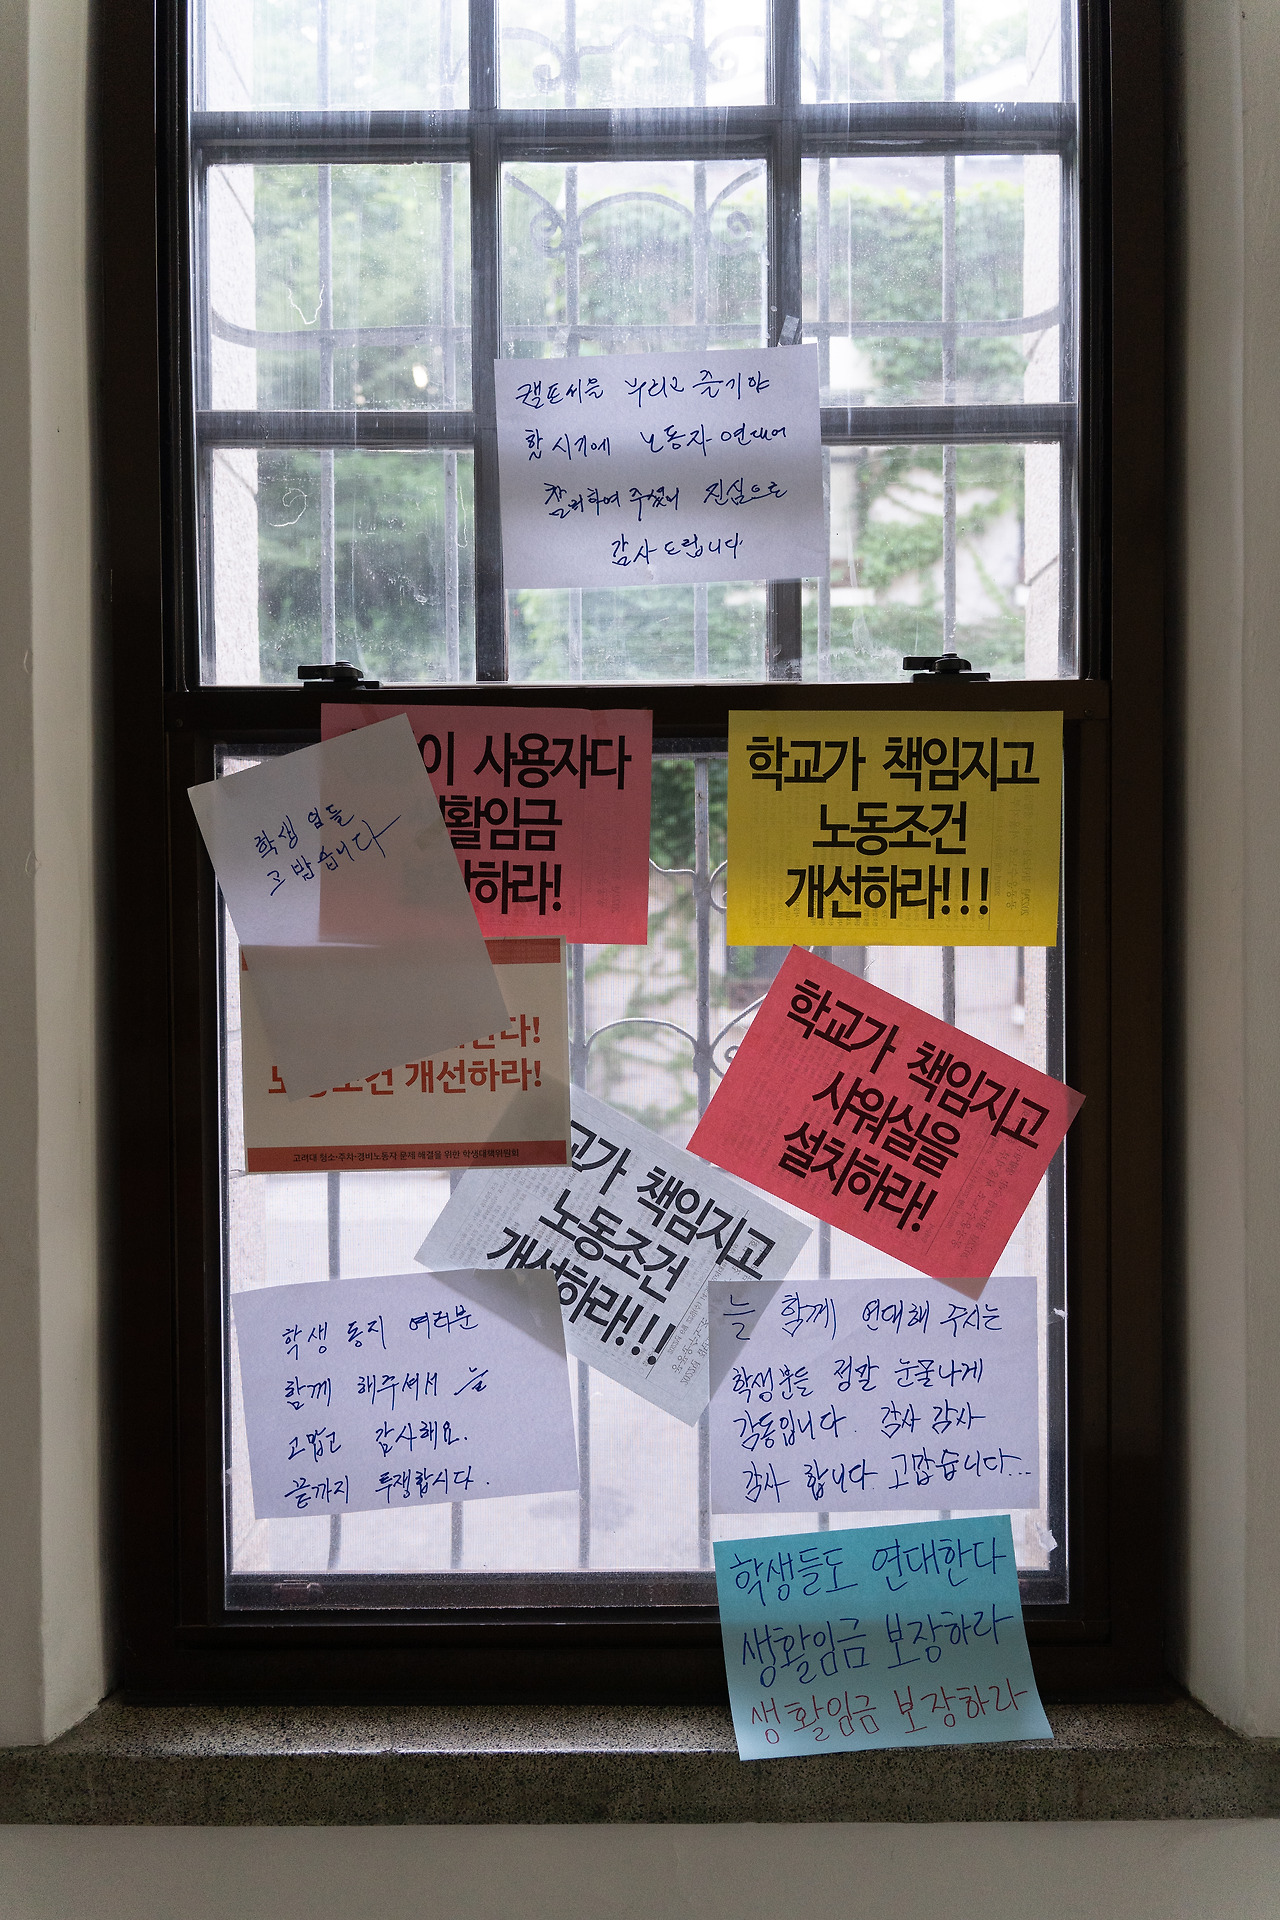 캠프씨를 누리고 즐기야
할 시기에 노동자 연대에
참여하여 주셨니 진심으로
감사 드립니다
이 사용자다
활임금
하라!
학생 엄들
고맙습니다
학교가 책임지고
노동조건
개선하라!!!
다!
조건 개선하라!
고려대 청소·주차·경비노동자 문제 해결을 위한 학생대책위원회
학교가 책임지고
샤워실을
설치하라!
교가 책임지고
노동조건
개선하라!!!
학생 동지 여러분
함께 해주셔서 늘
고맙고 감사해요.
끝까지 투쟁합시다.
늘 함께 연대해 주시는
학생분들 정말 눈물나게
감동입니다. 감사 감사
감사 합니다. 고맙습니다...
학생들도 연대한다
생활임금 보장하라
생활임금 보장하라